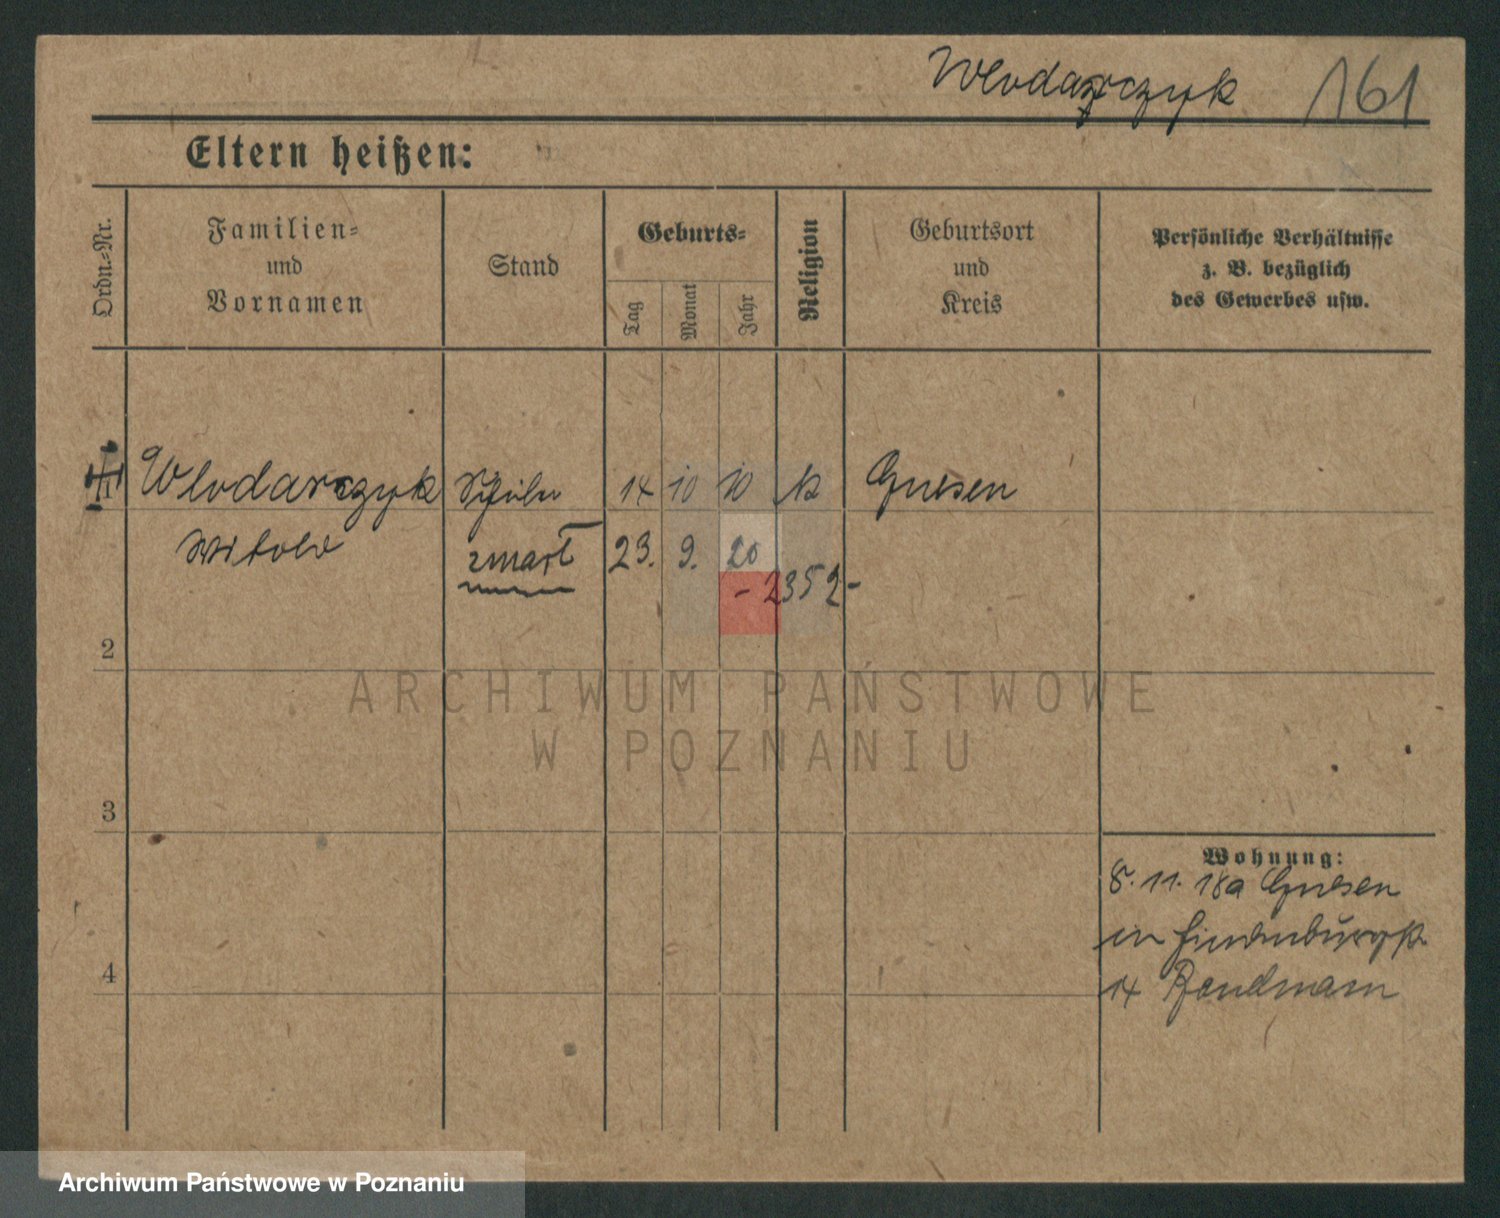 Wlodarczyk 161
Eltern heißen:
Ordn.-Nr.
Familien-
und
Vornamen
Stand
Geburts-
Tag
Monat
Jahr
Religion
Geburtsort
und
Kreis
Persönliche Verhältnisse
z. B. bezüglich
des Gewerbes usw.
Wlodarczyk Schüler 14 10 10 k Gnesen
Witold zmarł 23. 9. 20
- 2352 -
2
3
4
Wohnung:
8. 11. 18 a Gnesen
in Hindenburgstr.
14 Bandmann
ARCHIWUM PAŃSTWOWE
W POZNANIU
Archiwum Państwowe w Poznaniu